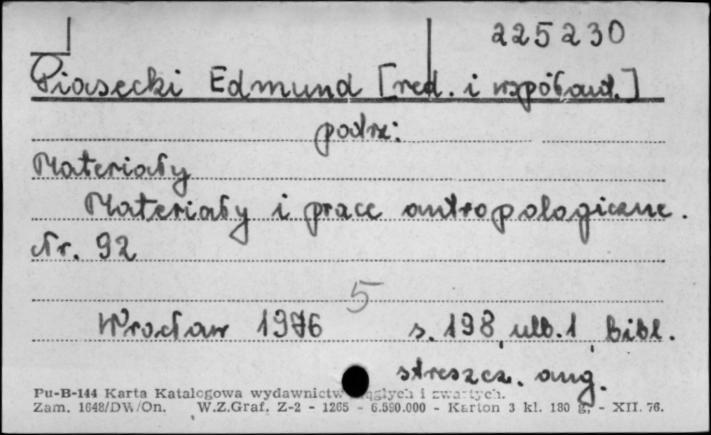 225230
Piasecki Edmund [red. i współaut.]
patrz:
Materiały
Materiały i prace antropologiczne.
Nr. 92
5
Wrocław 1976 s. 198, ulb. 1, Bibl.
streszcz. ang.
Pu-B-144 Karta Katalogowa wydawnictw ciągłych i zwartych.
Zam. 1648/DW/On. W.Z.Graf. Z-2 - 1265 - 6.590.000 - Karton 3 kl. 180 g. - XII. 76.